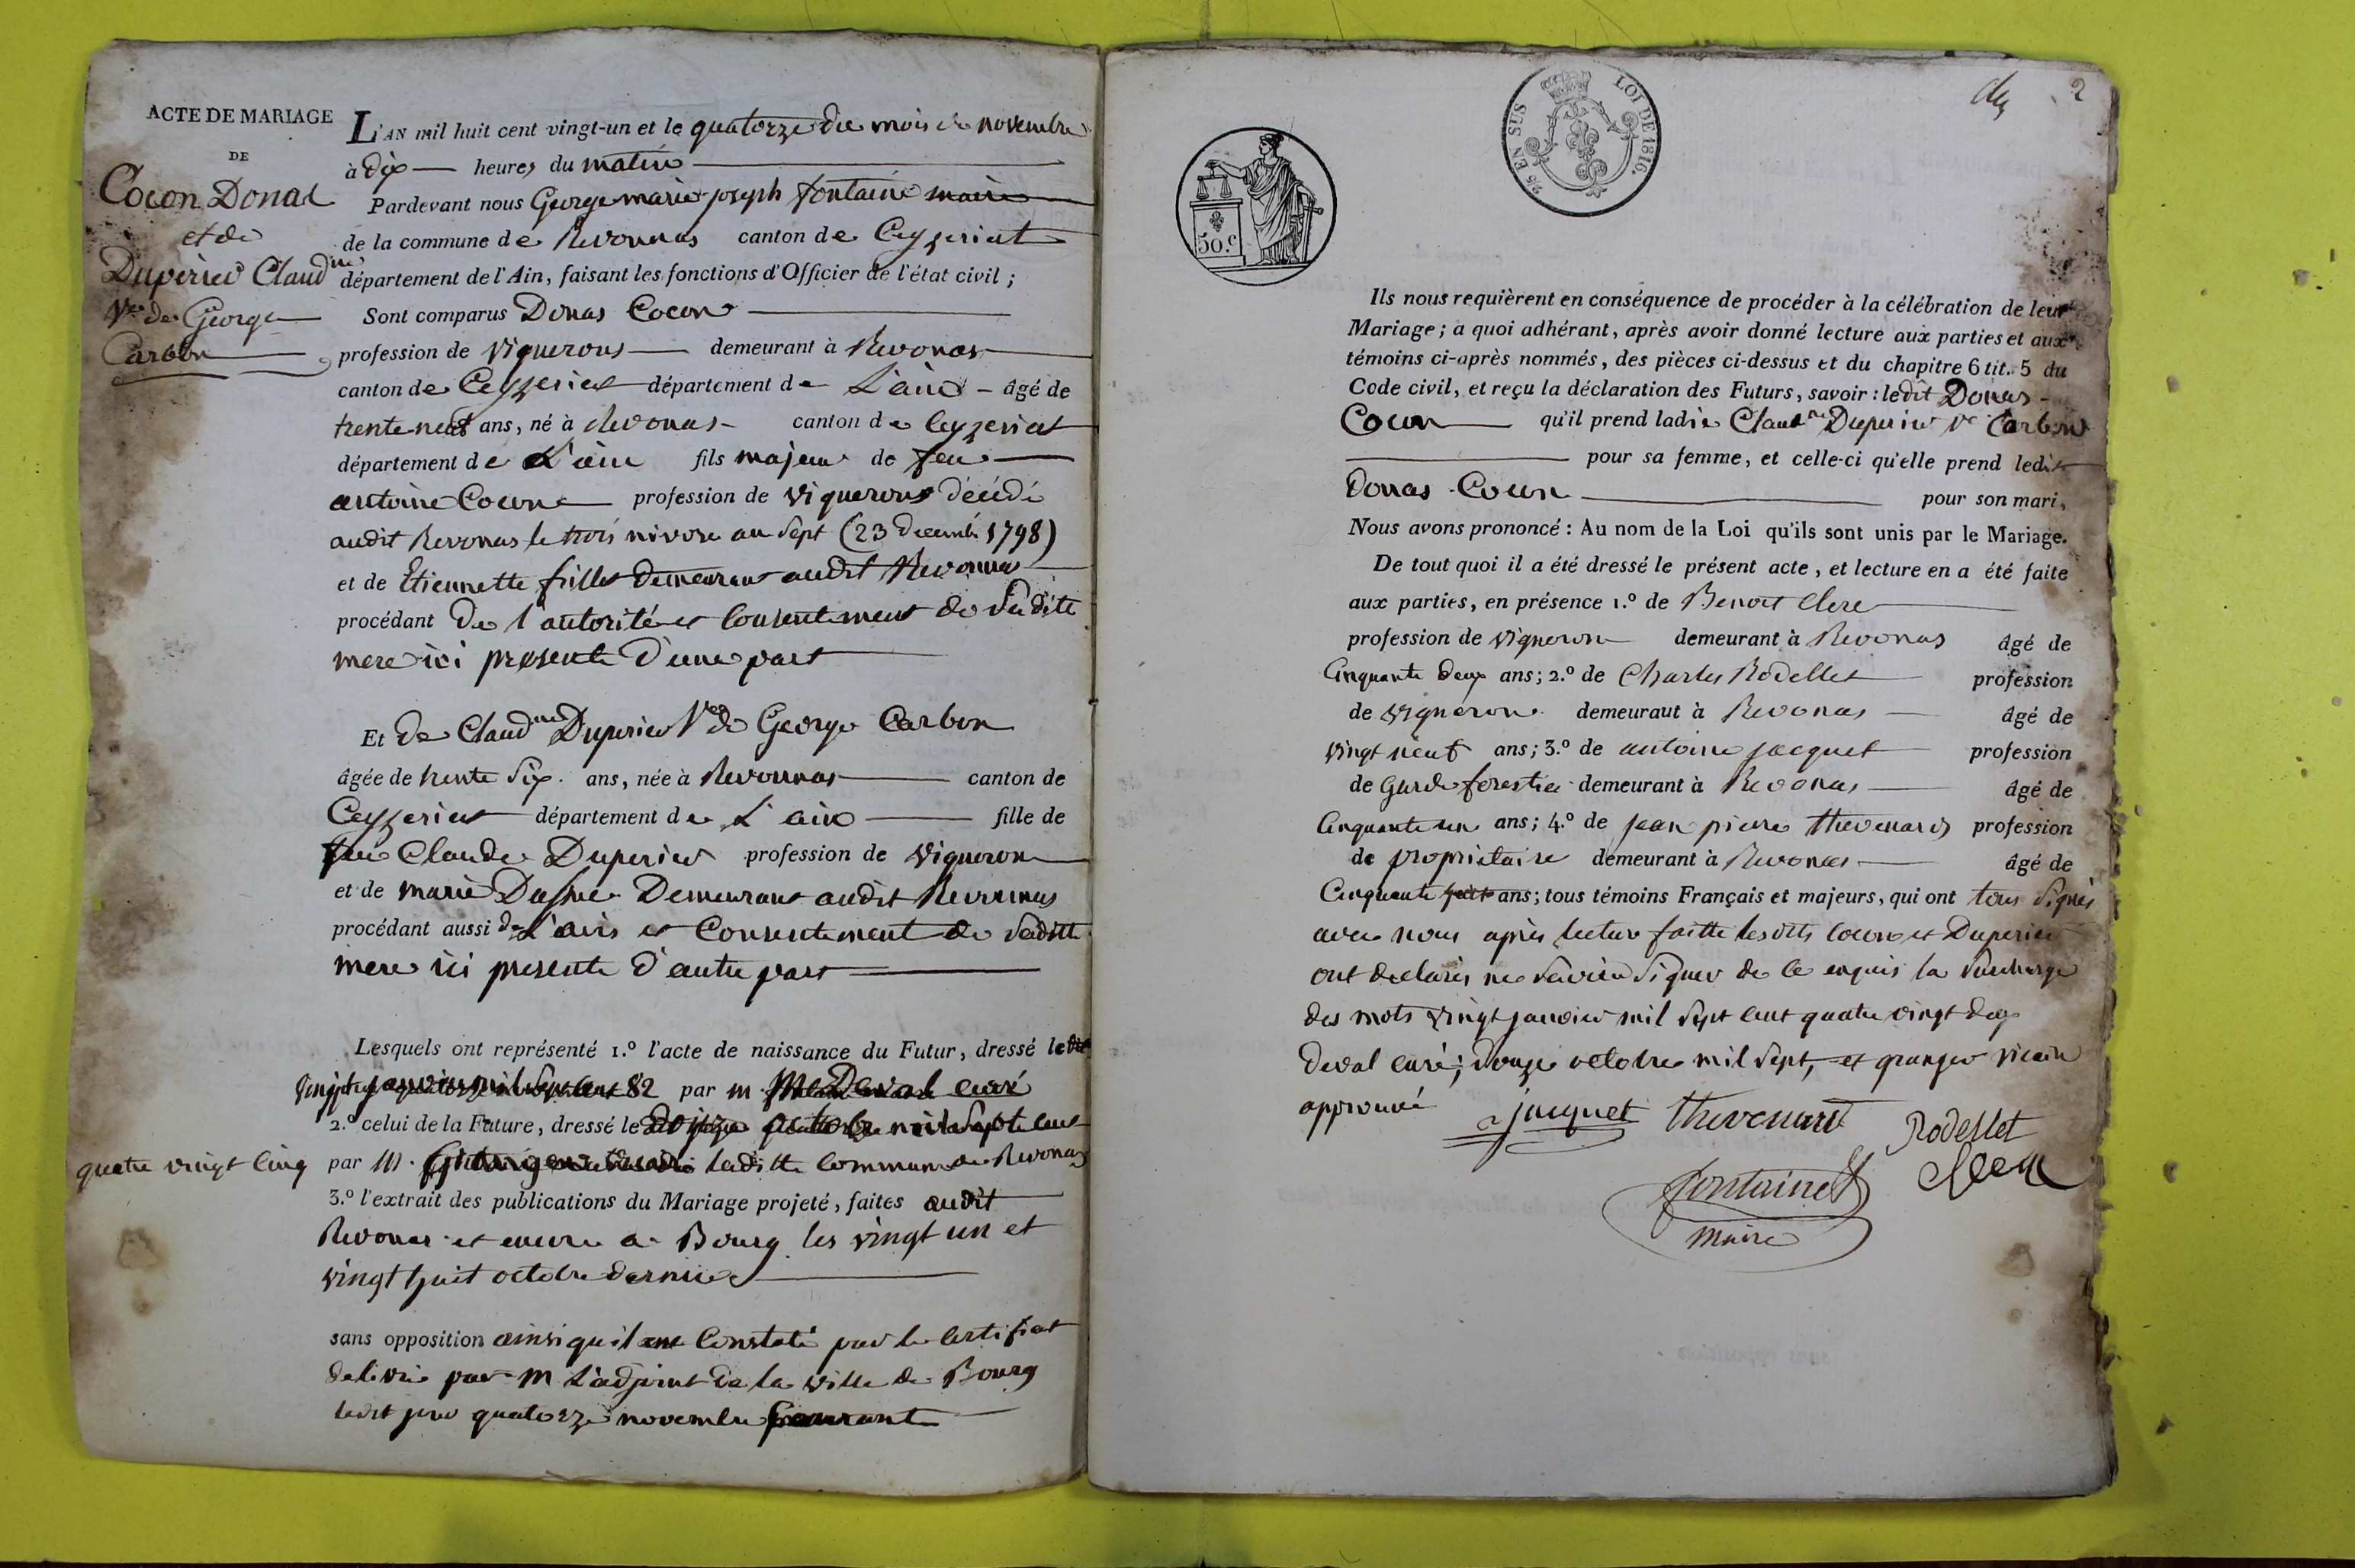 ACTE DE MARIAGE
DE
Cocon Donat
et de
Duperier Claudne
Ve de George
Carbon
L'AN mil huit cent vingt-un et le quatorze du mois de novembre
à dix heures du matin
Pardevant nous George marie joseph fontaine maire
de la commune de Revonnas canton de Ceyzeriat
département de l'Ain, faisant les fonctions d'Officier de l'état civil ;
Sont comparus Donas Cocon
profession de vigneron demeurant à Revonas
canton de Ceyzeriat département de L'ain - âgé de
trente neuf ans, né à Revonas - canton de Ceyzeriat
département de L'ain fils majeur de feu
antoine Cocon profession de vigneron décédé
audit Revonas le trois nivose an sept (23 decembre 1798)
et de Etiennette demeurant audit Revonnas
procédant de l'autorité et Consentement de sadite
mere ici presente d'une part
Et de Claudne Duperier Ve de George Carbon
âgée de trente six ans, née à Revonnas canton de
Ceyzeriat département de L'ain fille de
feu Claude Duperier profession de vigneron
et de marie Demeurant audit Revonnas
procédant aussi de L'avis et Consentement de saditte
mere ici presente d'autre part
Lesquels ont représenté 1.º l'acte de naissance du Futur, dressé le
vingt janvier mil sept cent 82 par m Deval curé
2.º celui de la Future, dressé le octobre mil sept cent
quatre vingt cinq par M. laditte commune de Revonas
3.º l'extrait des publications du Mariage projeté, faites audit
Revonas et encore a Bourg les vingt un et
vingt huit octobre dernier
sans opposition ainsi qu'il Constaté par le certificat
delivré par m L'adjoint de la ville de Bourg
ledit jour quatorze novembre courant
50.c
25 EN SUS
LOI DE 1816.
2
Ils nous requièrent en conséquence de procéder à la célébration de leur
Mariage ; a quoi adhérant, après avoir donné lecture aux parties et aux
témoins ci-après nommés, des pièces ci-dessus et du chapitre 6 tit. 5 du
Code civil, et reçu la déclaration des Futurs, savoir : ledit Donas
Cocon qu'il prend ladie Claudne Duperier Ve Carbon
pour sa femme, et celle-ci qu'elle prend ledit
Donas Cocon pour son mari,
Nous avons prononcé : Au nom de la Loi qu'ils sont unis par le Mariage.
De tout quoi il a été dressé le présent acte, et lecture en a été faite
aux parties, en présence 1.º de Benoit Clere
profession de vigneron demeurant à Revonas âgé de
Cinquante deux ans ; 2.º de Charles Rodellet profession
de vigneron demeurant à Revonas âgé de
vingt neuf ans ; 3.º de antoine jacquet profession
de Garde forestier demeurant à Revonas âgé de
Cinquante un ans ; 4.º de jean pierre thevenard profession
de propriétaire demeurant à Revonas âgé de
Cinquante huit ans ; tous témoins Français et majeurs, qui ont tous signés
avec nous après lecture faitte lesdits Cocon et Duperier
ont declarés ne savoir signer de ce enquis la surcharge
des mots vingt janvier mil sept cent quatre vingt deux
deval curé; douze octobre mil sept, et granger vicaire
approuvé
a jacquet thevenard Rodellet
fontaine Clere
maire